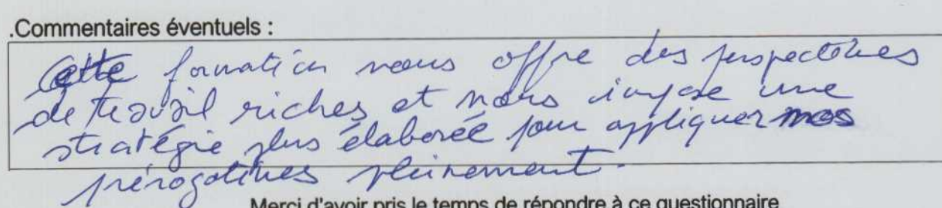 .Commentaires éventuels :
Cette formation nous offre des perspectives
de travail riches et nous impose une
stratégie plus élaborée pour appliquer nos
prérogatives pleinement.
Merci d'avoir pris le temps de répondre à ce questionnaire